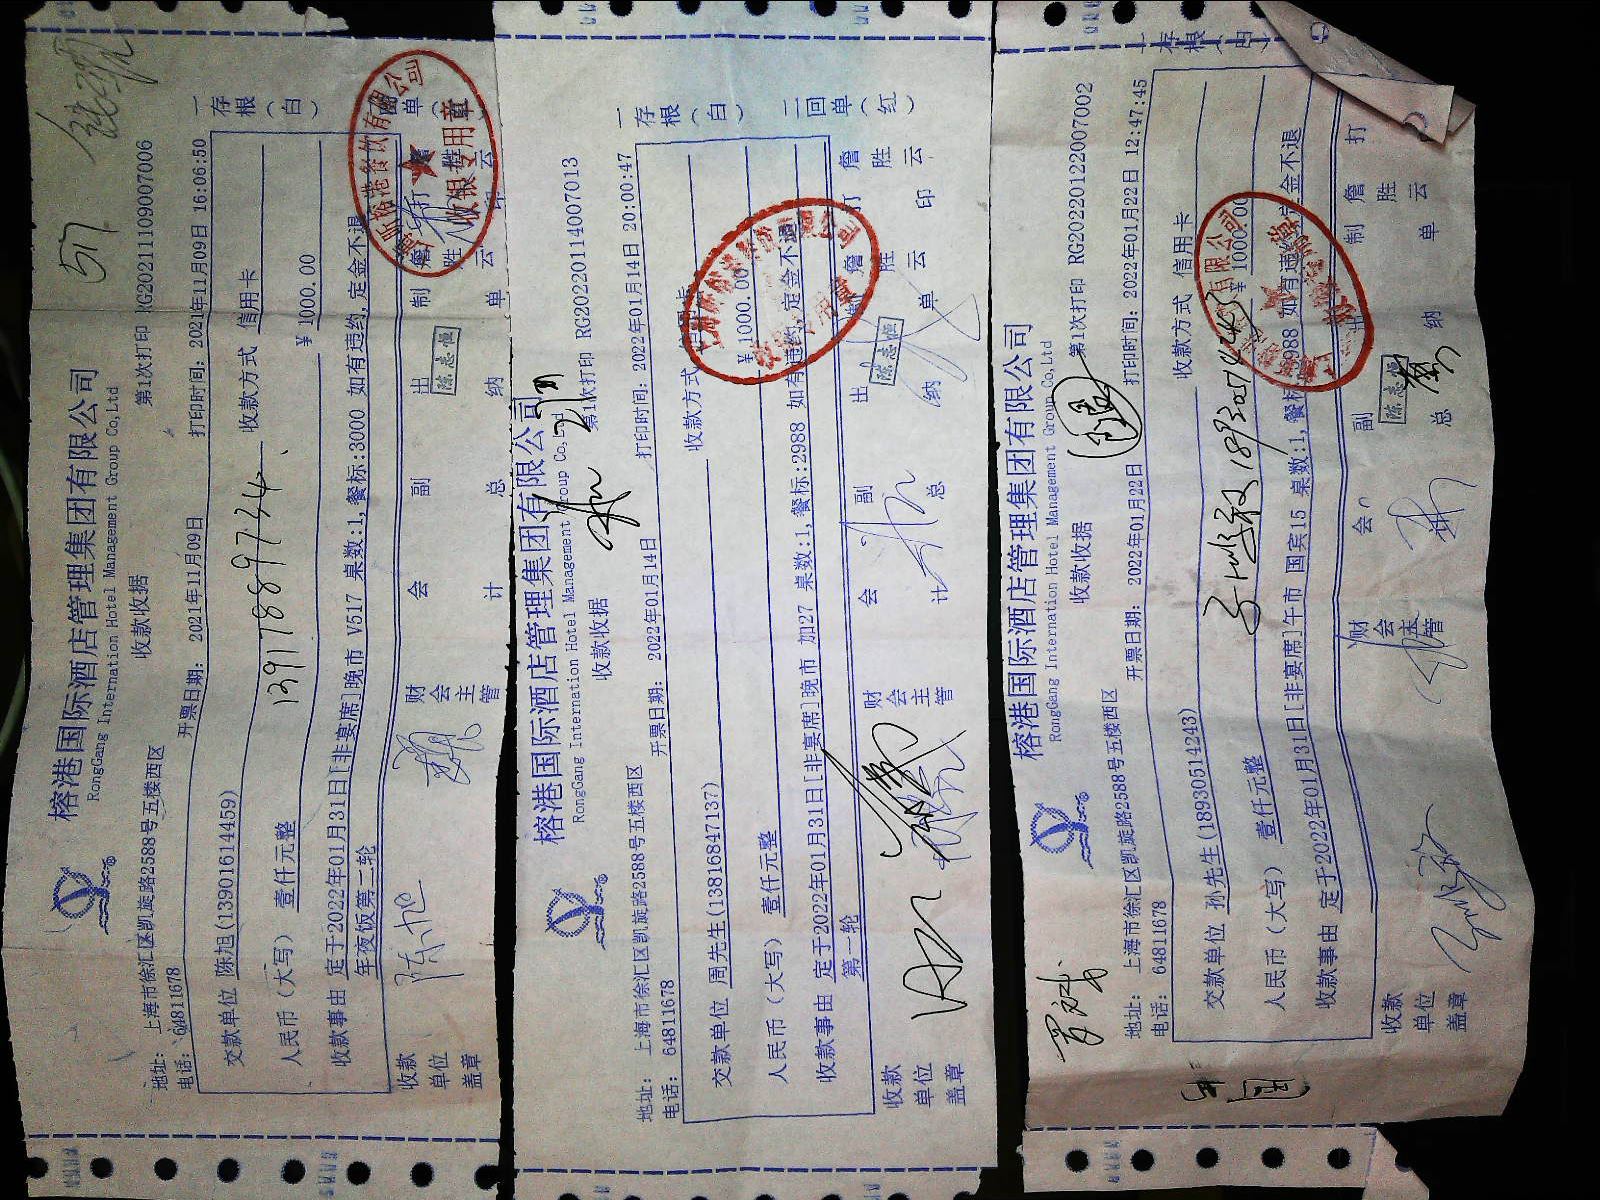 榕港国际酒店管理集团有限公司
RongGang International Hotel Management Group Co,Ltd
收款收据
第1次打印 RG2021109007006
地址: 上海市徐汇区凯旋路2588号五楼西区
电话: 64811678
开票日期: 2021年11月09日
打印时间: 2021年11月09日 16:06:50
517
交款单位 陈旭(13901614459)
收款方式 信用卡
13917889734
人民币（大写） 壹仟元整
¥ 1000.00
收款事由 定于2022年01月31日[非宴席]晚市 V517 桌数:1,餐标:3000 如有违约,定金不退
年夜饭第二轮
收款单位盖章
陈旭
财会主管
会计
副总
出纳
陈志恒
制单 詹胜云
打印 詹胜云
收银专用章
一存根（白）
榕港国际酒店管理集团有限公司
RongGang International Hotel Management Group Co,Ltd
收款收据
第1次打印 RG20220114007013
地址: 上海市徐汇区凯旋路2588号五楼西区
电话: 64811678
开票日期: 2022年01月14日
打印时间: 2022年01月14日 20:00:47
交款单位 周先生(13816847137)
收款方式
人民币（大写） 壹仟元整
¥ 1000.00
收款事由 定于2022年01月31日[非宴席]晚市 加27 桌数:1,餐标:2988 如有违约,定金不退
第一轮
收款单位盖章
财会主管
会计
副总
出纳
陈志恒
制单 詹胜云
打印 詹胜云
一存根（白）
二回单（红）
榕港国际酒店管理集团有限公司
RongGang International Hotel Management Group Co,Ltd
收款收据
第1次打印 RG20220122007002
地址: 上海市徐汇区凯旋路2588号五楼西区
电话: 64811678
开票日期: 2022年01月22日
打印时间: 2022年01月22日 12:47:45
交款单位 孙先生(18930514243)
收款方式 信用卡
人民币（大写） 壹仟元整
¥ 1000.00
收款事由 定于2022年01月31日[非宴席]午市 国宾15 桌数:1,餐标:3988 如有违约,定金不退
收款单位盖章
财会主管
会
副总
出纳
陈志恒
制单 詹胜云
打
一存根